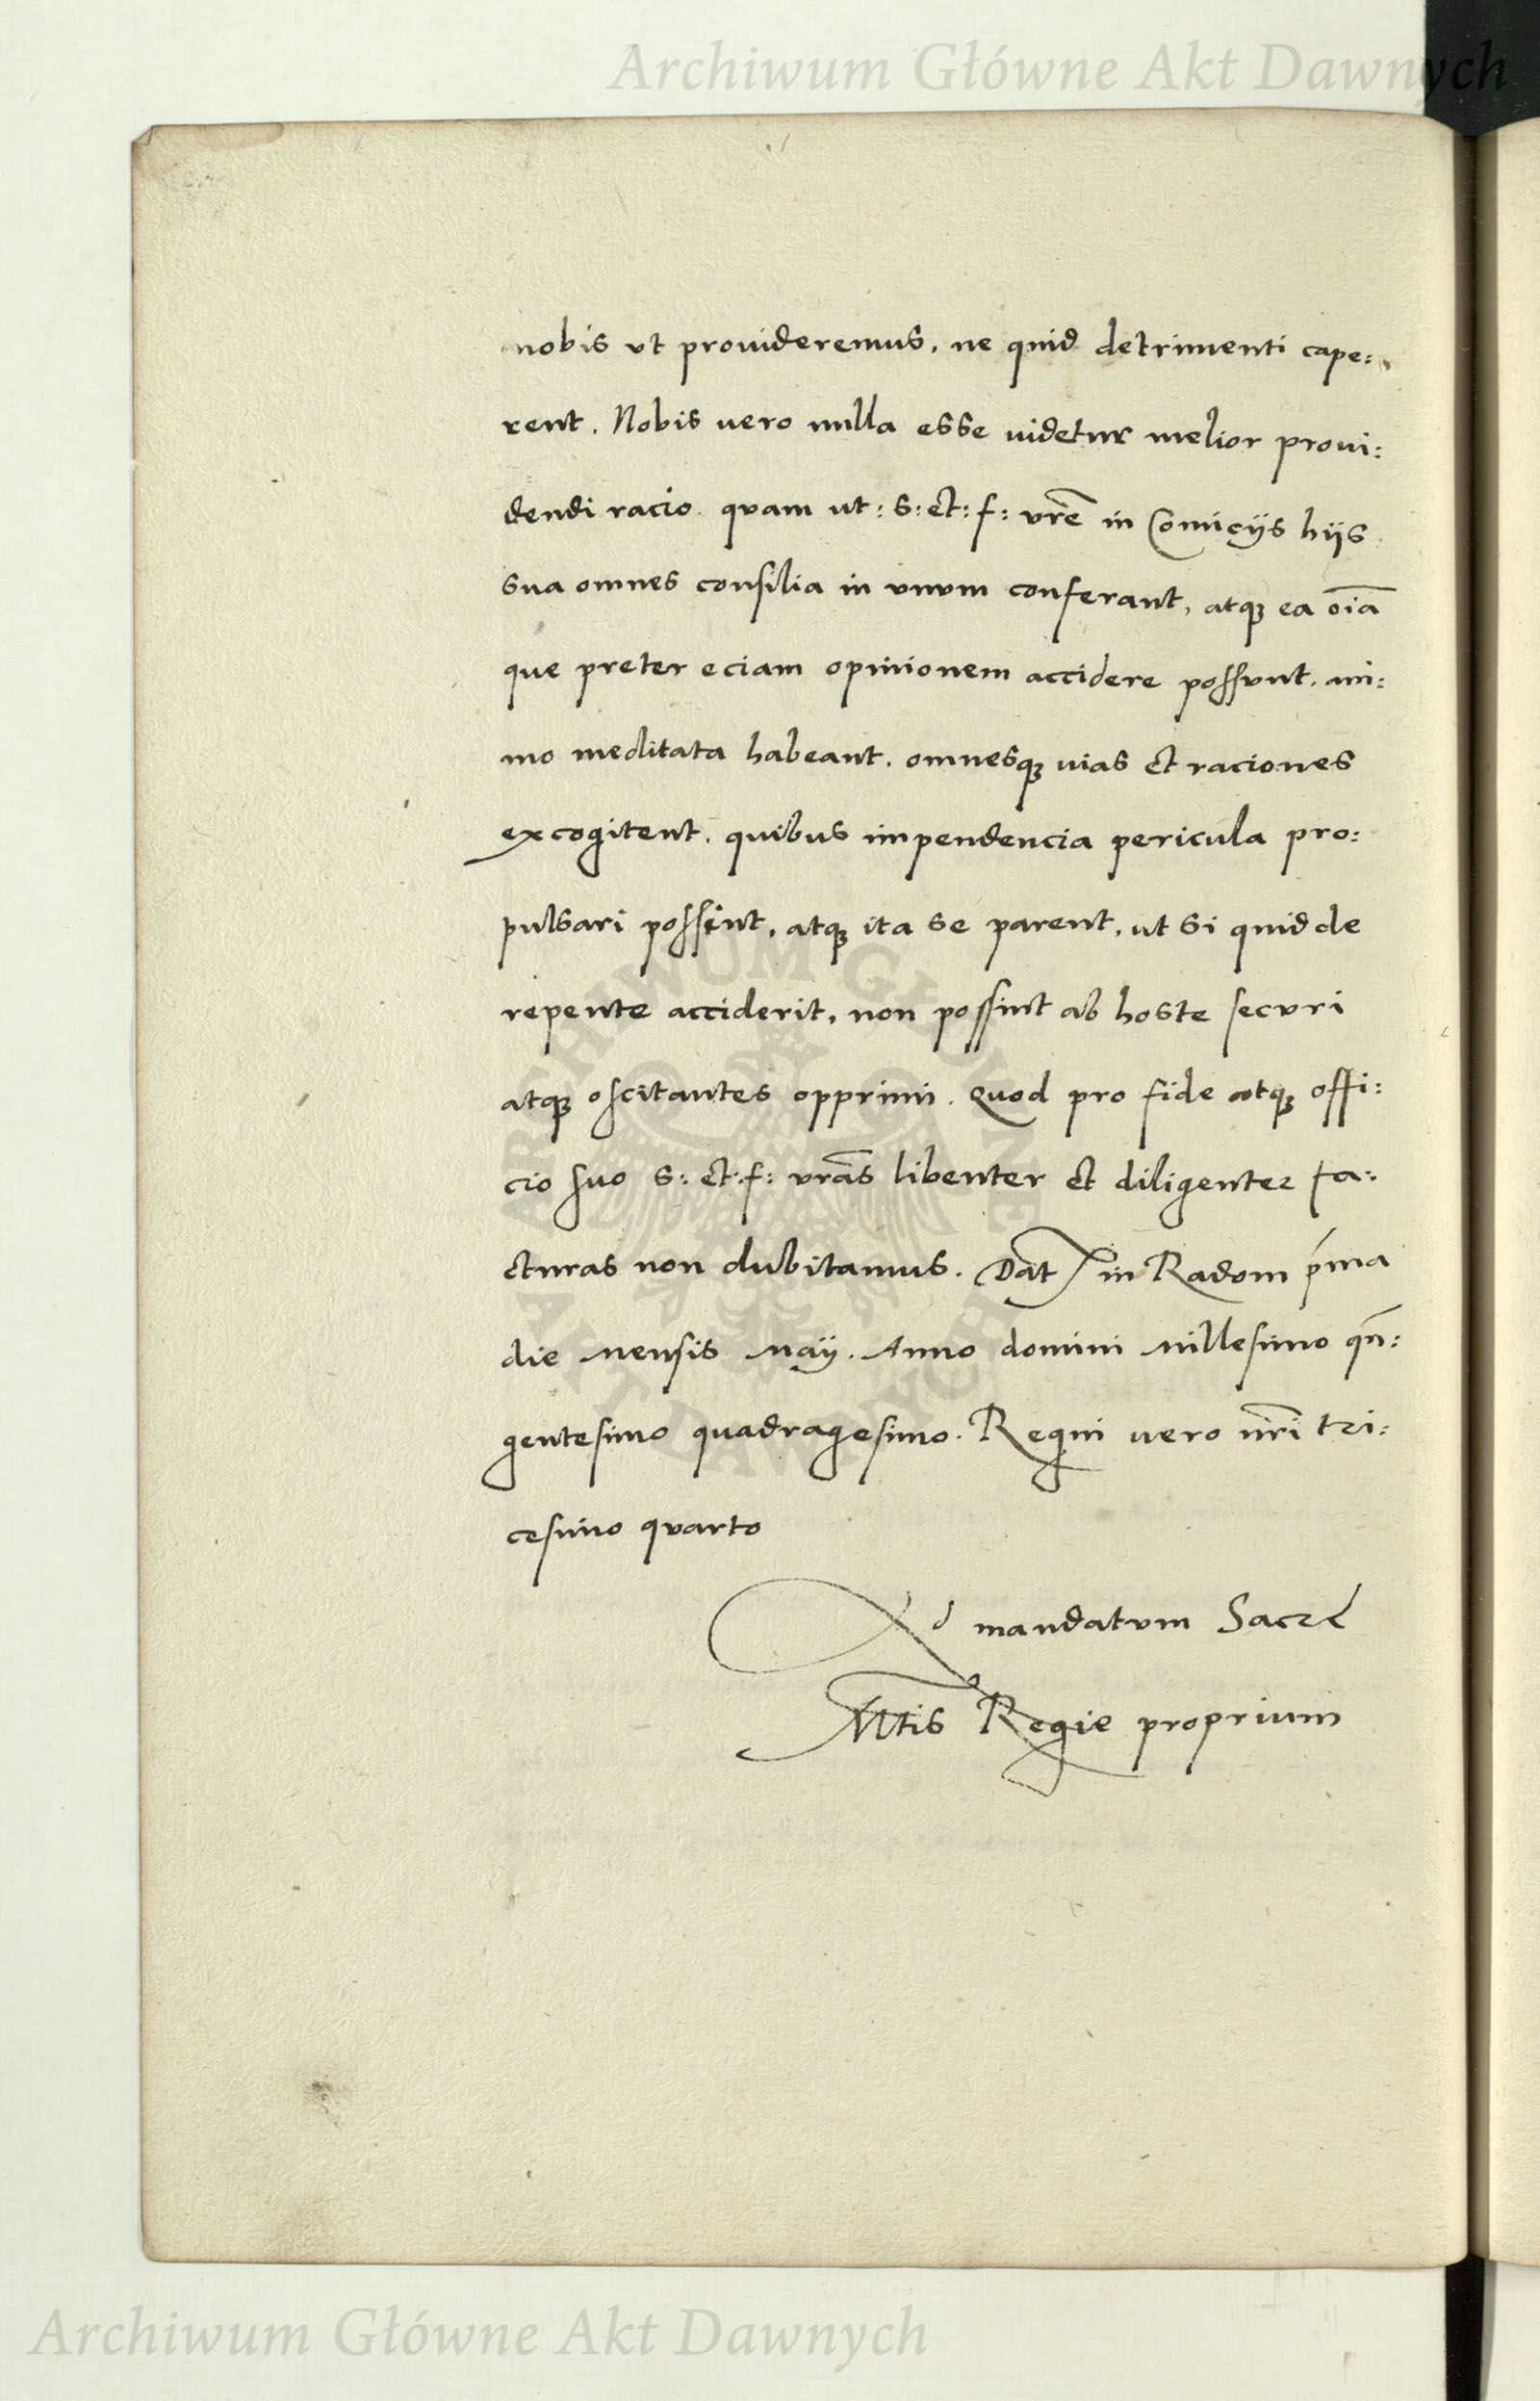 Archiwum Główne Akt Dawnych
nobis ut prouideremus, ne quid detrimenti cape:
rent. Nobis uero nulla esse uidetur melior proui:
dendi racio quam ut: s: et: f: vrē in Comicijs hijs
sua omnes consilia in vnvm conferant, atqꝫ ea oīa
que preter eciam opinionem accidere possvnt, ani:
mo meditata habeant, omnesqꝫ uias et raciones
excogitent, quibus impendencia pericula pro:
pulsari possint, atqꝫ ita se parent, ut si quid de
repente acciderit, non possint ab hoste secvri
atqꝫ oscitantes opprimi. Quod pro fide atqꝫ offi:
cio suo s: et: f: vrās libenter et diligenter fa:
cturas non dubitamus. Dat in Radom ṕma
die mensis maij. Anno domini millesimo qn̄:
gentesimo quadragesimo. Regni uero nr̄i tri:
cesimo qvarto
Ad mandatvm Sacre
Mtis Regie proprium
ARCHIWUM GŁÓWNE
AKT DAWNYCH
Archiwum Główne Akt Dawnych